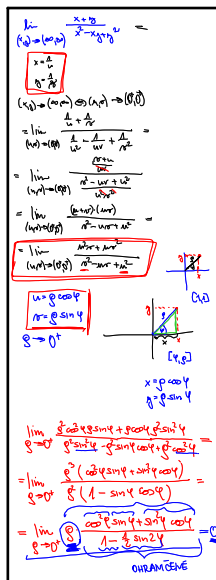 lim (x,y)→(∞,∞) x+y / x²-xy+y²
x = 1/u
y = 1/v
(x,y)→(∞,∞) ⇔ (u,v)→(0⁺,0⁺)
= lim (u,v)→(0⁺,0⁺) 1/u + 1/v / 1/u² - 1/uv + 1/v² =
= lim (u,v)→(0⁺,0⁺) v+u / uv / v²-uv+u² / u²v² =
= lim (u,v)→(0⁺,0⁺) (u+v)·(uv) / v²-uv+u² =
= lim (u,v)→(0⁺,0⁺) u²v+uv² / v²-uv+u²
u = ρ cos φ
v = ρ sin φ
ρ → 0⁺
y
x
[φ,ρ]
x = ρ cos φ
y = ρ sin φ
= lim ρ→0⁺ ρ²cos²φ ρ sin φ + ρ cos φ ρ² sin²φ / ρ² sin²φ - ρ² sin φ cos φ + ρ² cos²φ =
= lim ρ→0⁺ ρ³ (cos²φ sin φ + sin²φ cos φ) / ρ² (1 - sin φ cos φ) =
= lim ρ→0⁺ ρ cos²φ sin φ + sin²φ cos φ / 1 - ½ sin 2φ = 0
OHRANIČENÉ